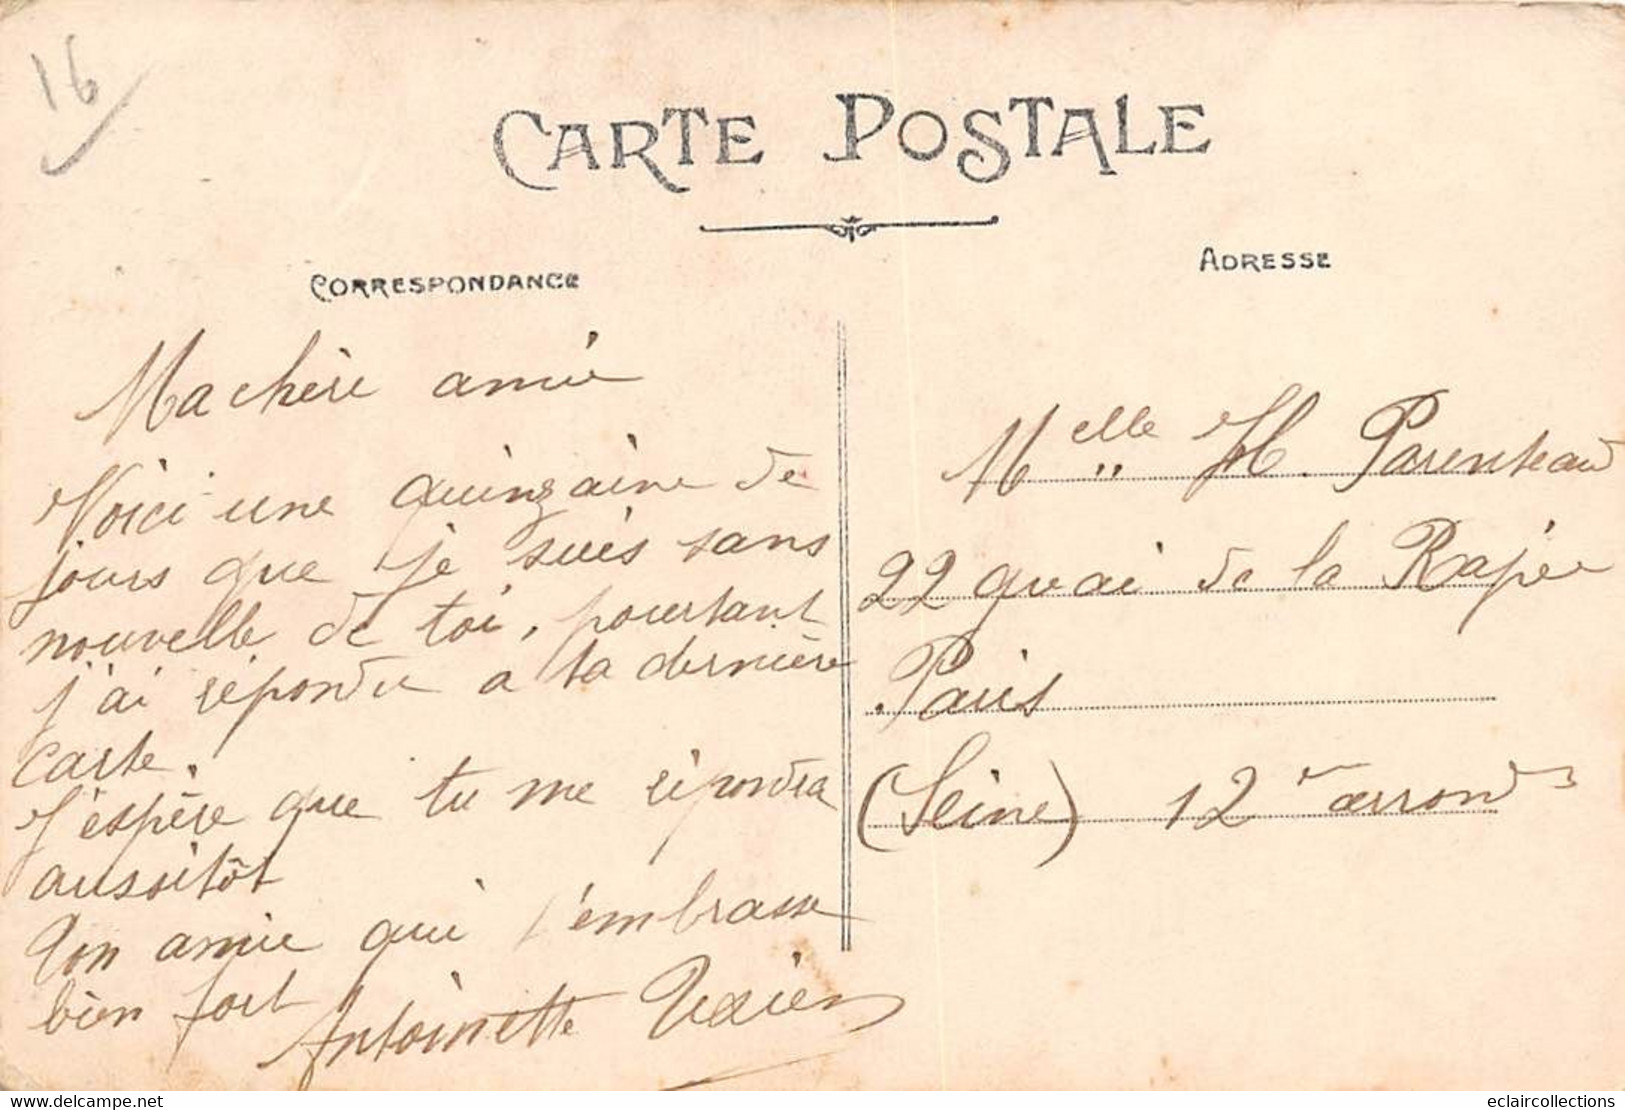 16
CARTE POSTALE
CORRESPONDANCE
ADRESSE
Ma chère amie
Voici une quinzaine de
jours que je suis sans
nouvelle de toi, pourtant
j'ai répondu a ta dernière
carte.
J'espère que tu me répondra
aussitôt
Ton amie qui t'embrasse
bien fort
Antoinette
Melle H. Parenteau
22 quai de la Rapée
Paris
(Seine) 12 arrond
eclaircollections
www.delcampe.net